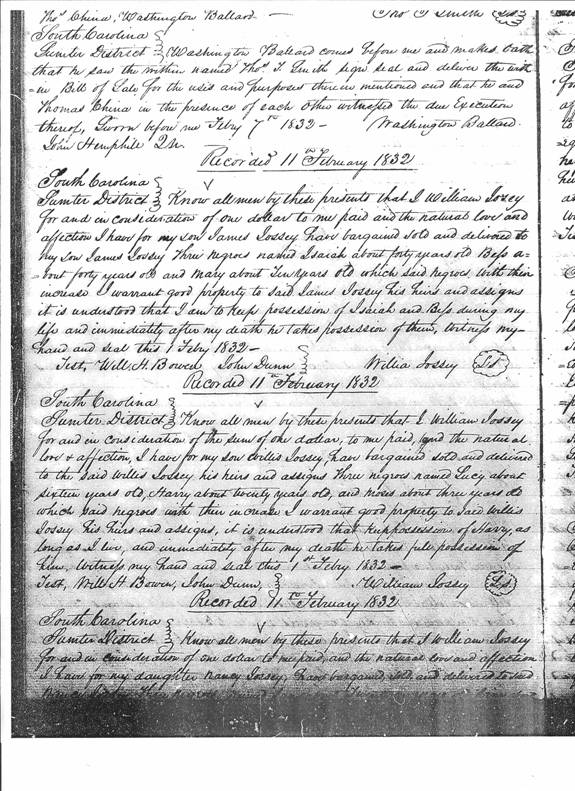 Thos. China, Washington Ballard — Thos T Smith L.S
South Carolina
Sumter District Washington Ballard comes before me and makes oath
that he saw the within named Thos. T. Smith sign seal and deliver the with
=in Bill of Sale for the uses and purposes therein mentioned and that he and
Thomas China in the presence of each other witnessed the due Execution
thereof, Sworn before me Feby 7th 1832 — Washington Ballard
John Hemphill
Recorded 11th February 1832
South Carolina
Sumter District Know all men by these presents that I William Jossey
for and in consideration of one dollar to me paid and the natural love and
affection I have for my son James Jossey have bargained sold and delivered to
my son James Jossey three negroes named Isaiah about forty years old Bess a=
=bout forty years old and Mary about Ten years old which said negroes with their
increase I warrant good property to said James Jossey his heirs and assigns
it is understood that I am to keep possession of Isaiah and Bess during my
life and immediately after my death he takes possession of them, Witness my
hand and seal this 1 Feby 1832 —
Test, Will. H. Bowen John Dunn Willia Jossey L.S
Recorded 11th February 1832
South Carolina
Sumter District Know all men by these presents that I William Jossey
for and in consideration of the sum of one dollar, to me paid, and the natural
love & affection, I have for my son Willis Jossey, have bargained sold and delivered
to the said Willis Jossey his heirs and assigns three negros named Lucy about
sixteen years old, Harry about twenty years old, and Moses about three years old
which said negros with their increase I warrant good property to said Willis
Jossey his heirs and assigns, it is understood that I keep possession of Harry, as
long as I live, and immediately after my death he takes full possession of
him, Witness my hand and seal this 1st Feby 1832 —
Test, Will H Bowen, John Dunn, William Jossey L.S
Recorded 11th February 1832
South Carolina
Sumter District Know all men by these presents that I William Jossey
for and in consideration of one dollar to me paid, and the natural love and affection
I have for my daughter Nancy Jossey, have bargained, sold, and delivered to said